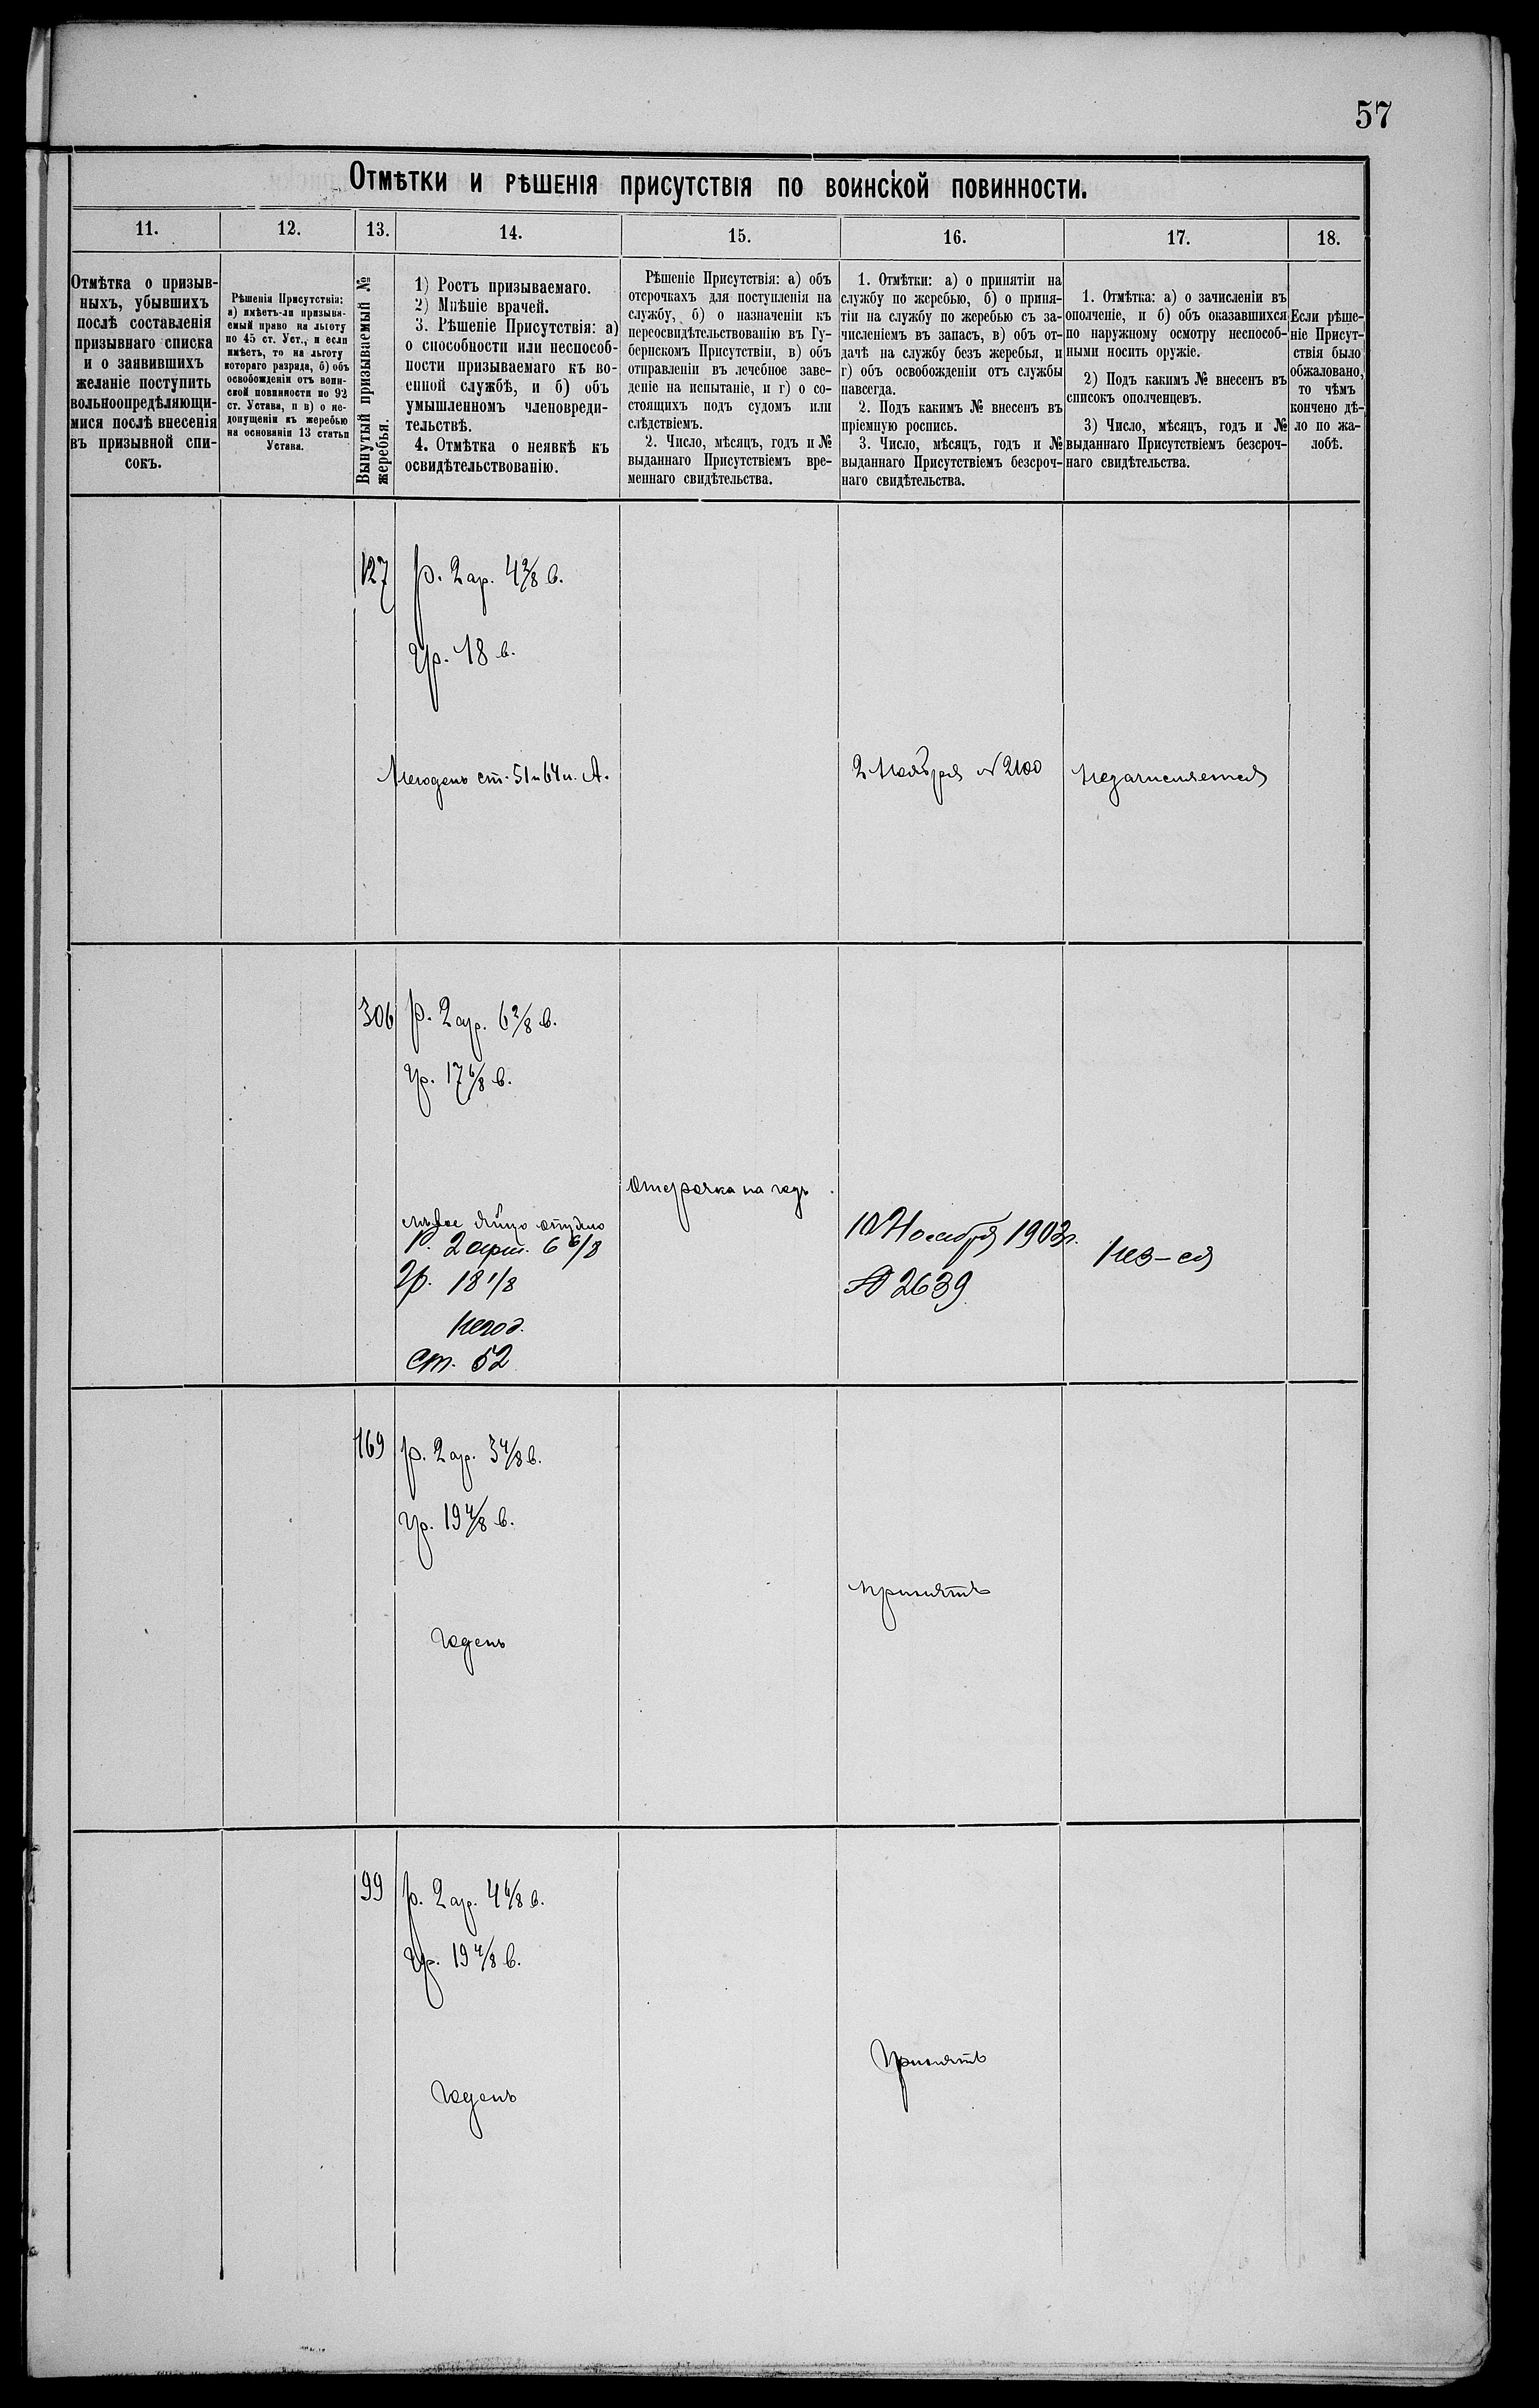 57
Отмѣтки и рѣшенія присутствія по воинской повинности.
11.
12.
13.
14.
15.
16.
17.
18.
Отмѣтка о призыв-
ныхъ, убывшихъ
послѣ составленія
призывнаго списка
и о заявившихъ
желаніе поступить
вольноопредѣляющи-
мися послѣ внесенія
въ призывной спи-
сокъ.
Рѣшенія Присутствія:
а) имѣетъ-ли призыва-
емый право на льготу
по 45 ст. Уст., и если
имѣетъ, то на льготу
котораго разряда, б) объ
освобожденіи отъ воин-
ской повинности по 92
ст. Устава, и в) о не-
допущеніи къ жеребью
на основаніи 13 статьи
Устава.
Вынутый призываемый №
жеребья.
1) Ростъ призываемаго.
2) Мнѣніе врачей.
3. Рѣшеніе Присутствія: а)
о способности или неспособ-
ности призываемаго къ во-
енной службѣ, и б) объ
умышленномъ членовреди-
тельствѣ.
4. Отмѣтка о неявкѣ къ
освидѣтельствованію.
Рѣшеніе Присутствія: а) объ
отсрочкахъ для поступленія на
службу, б) о назначеніи къ
переосвидѣтельствованію въ Гу-
бернскомъ Присутствіи, в) объ
отправленіи въ лечебное заве-
деніе на испытаніе, и г) о со-
стоящихъ подъ судомъ или
слѣдствіемъ.
2. Число, мѣсяцъ, годъ и №
выданнаго Присутствіемъ вре-
меннаго свидѣтельства.
1. Отмѣтки: а) о принятіи на
службу по жеребью, б) о приня-
тіи на службу по жеребью съ за-
численіемъ въ запасъ, в) объ от-
дачѣ на службу безъ жеребья, и
г) объ освобожденіи отъ службы
навсегда.
2. Подъ какимъ № внесенъ въ
пріемную роспись.
3. Число, мѣсяцъ, годъ и №
выданнаго Присутствіемъ безсроч-
наго свидѣтельства.
1. Отмѣтка: а) о зачисленіи въ
ополченіе, и б) объ оказавшихся
по наружному осмотру неспособ-
ными носить оружіе.
2) Подъ какимъ № внесенъ въ
списокъ ополченцевъ.
3) Число, мѣсяцъ, годъ и №
выданнаго Присутствіемъ безсроч-
наго свидѣтельства.
Если рѣше-
ніе Присут-
ствія было
обжаловано,
то чѣмъ
кончено дѣ-
ло по жа-
лобѣ.
127
р. 2 ар. 4 2/8 в.
гр. 18 в.
Негоденъ ст. 51 и 64 п. А.
2 Ноября № 2100
Незачисляется
306
р. 2 ар. 6 2/8 в.
гр. 17 6/8 в.
Отсрочка на годъ.
лѣвое яйцо
Р. 2 арш. 6 6/8
Гр. 18 1/8
Негод.
ст. 52
10 Ноября 1903 г.
№ 2639
Нез-ся
169
р. 2 ар. 3 4/8 в.
гр. 19 4/8 в.
годенъ
принятъ
99
р. 2 ар. 4 6/8 в.
гр. 19 4/8 в.
годенъ
принятъ